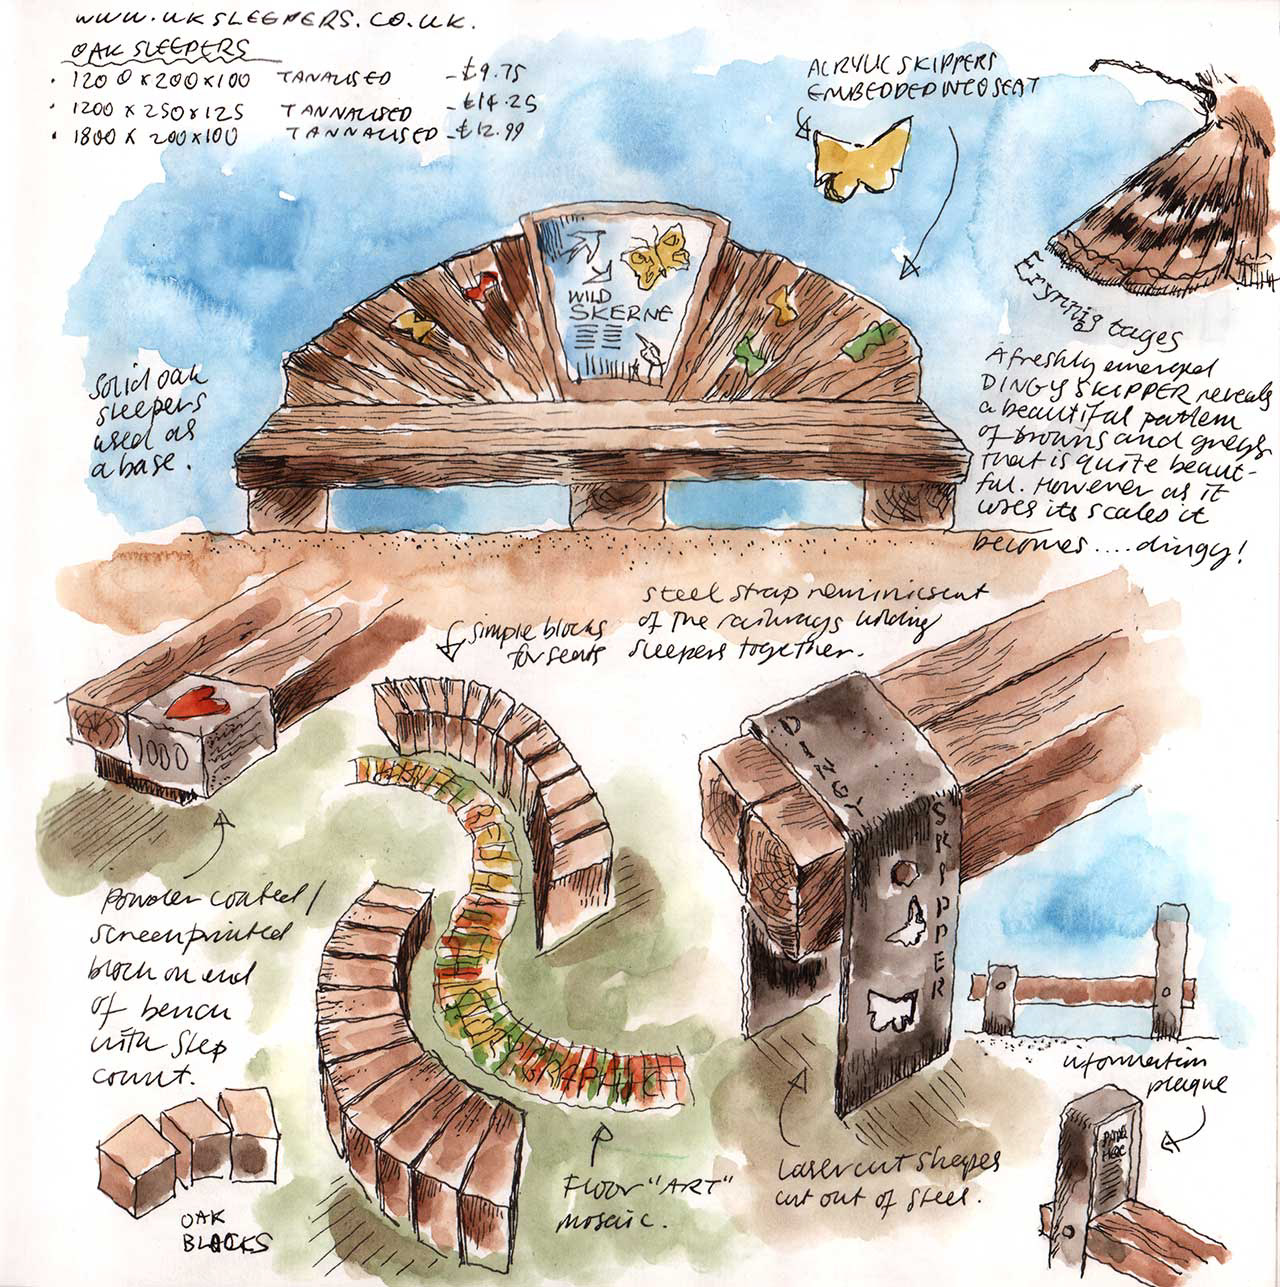 WWW.UKSLEEPERS.CO.UK.
OAK SLEEPERS
• 1200 x 200 x 100 TANALISED - £9.75
• 1200 x 250 x 125 TANNALISED - £14.25
• 1800 x 200 x 100 TANNALISED - £12.99
ACRYLIC SKIPPERS
EMBEDDED INTO SEAT
WILD
SKERNE
Solid oak
sleepers
used as
a base.
Erynnis tages
A freshly emerged
DINGY SKIPPER reveals
a beautiful pattern
of browns and greys
that is quite beaut-
ful. However as it
loses its scales it
becomes....dingy!
steel strap reminiscent
of the railways holding
sleepers together.
simple blocks
for seats
1000
DINGY
SKIPPER
Powder coated/
screenprinted
block on end
of bench
with step
count.
OAK
BLOCKS
FLOOR "ART"
mosaic.
Laser cut shapes
cut out of steel.
information
plaque